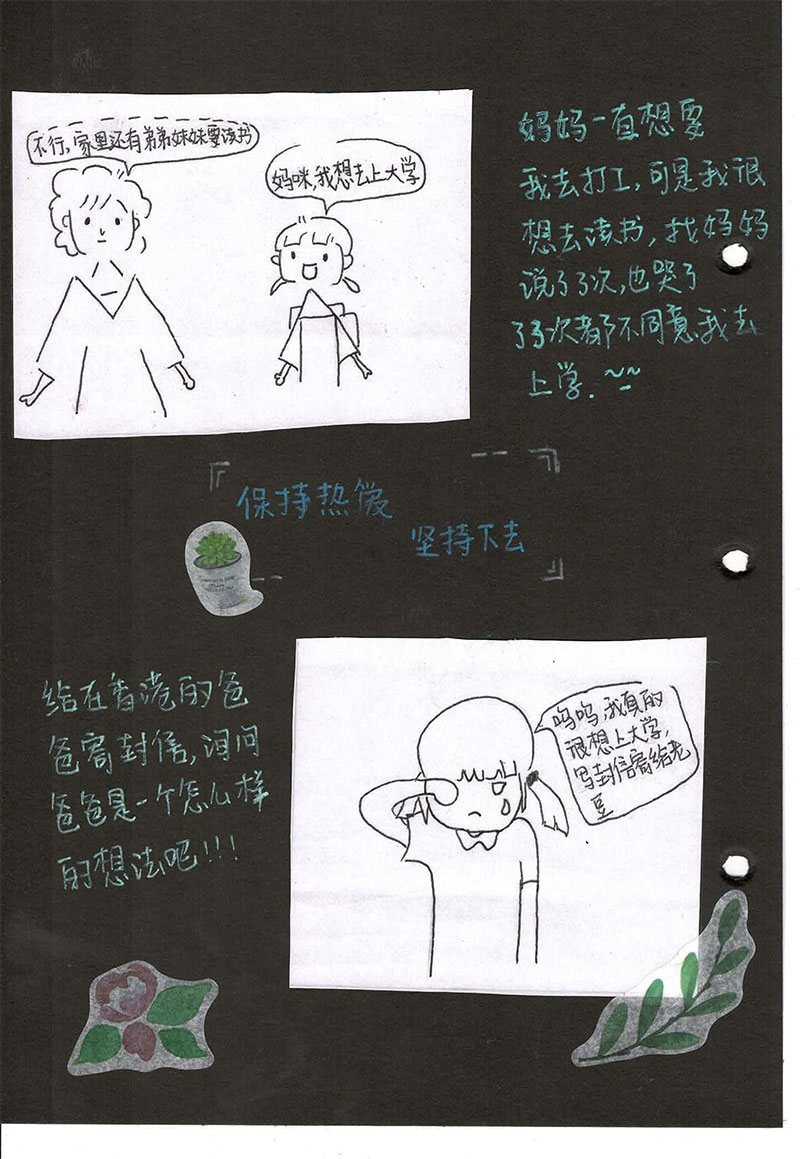 不行,家里还有弟弟妹妹要读书
妈咪,我想去上大学
妈妈一直想要
我去打工,可是我很
想去读书,找妈妈
说了了次,也哭了
了3次都不同意我去
上学.
保持热爱
坚持下去
给在香港的爸
爸寄封信,询问
爸爸是一个怎么样
的想法吧!!!
呜呜,我真的
很想上大学,
写封信寄给老
豆